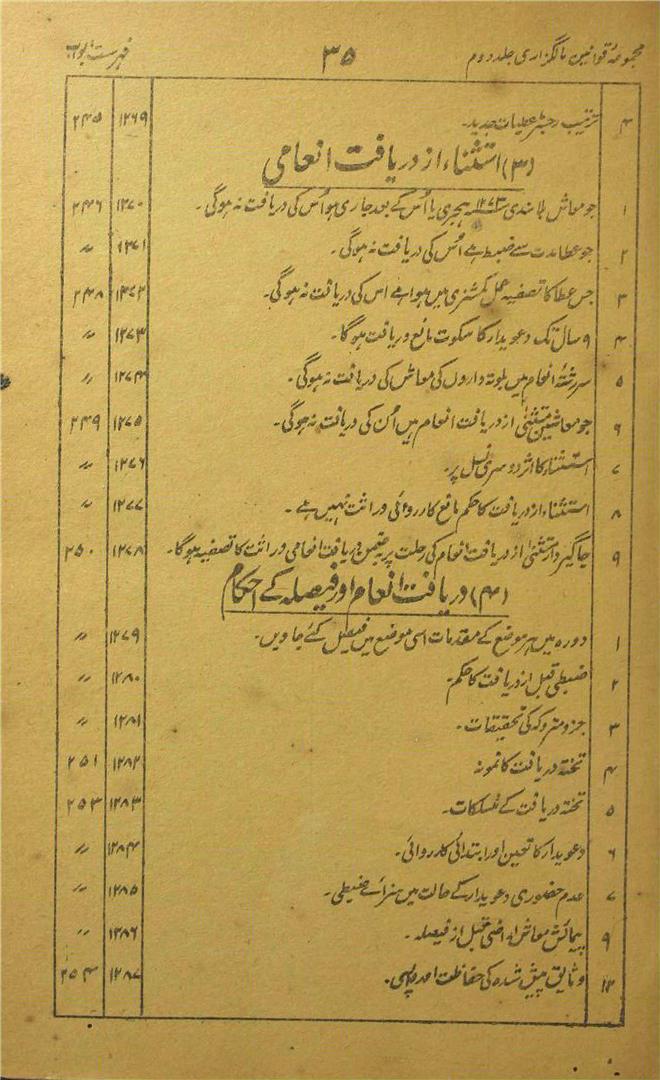 مجموعۂ قوانین مالگزاری جلد دوم ۳۵ فہرست ابواب
۴ ترتیب رجسٹر عطیات جدید۔ ۱۲۶۹ ۲۴۵
(۳) استثناء از دریافت انعامی
۱ جو معاش بلا سندی ۱۲۷۳ ہجری یا اُس کے بعد جاری ہو اُس کی دریافت نہ ہوگی۔ ۱۲۷۰ ۲۴۶
۲ جو عطا مدت سے ضبط ہے اُس کی دریافت نہ ہوگی۔ ۱۲۷۱ 〃
۳ جس عطا کا تصفیہ عمل کمشنری میں ہوا ہے اس کی دریافت نہ ہوگی۔ ۱۲۷۲ ۲۴۸
۴ ۹ سال تک دعویدار کا سکوت مانع دریافت ہوگا۔ ۱۲۷۳ 〃
۵ سررشتۂ انعام میں بلوتہ داروں کی معاش کی دریافت نہ ہوگی۔ ۱۲۷۴ 〃
۶ جو معاشیں مستثنیٰ از دریافت انعام ہیں اُن کی دریافت نہ ہوگی۔ ۱۲۷۵ ۲۴۹
۷ استثناء کا اثر دوسری نسل پر۔ ۱۲۷۶ 〃
۸ استثناء از دریافت کا حکم مانع کارروائی وراثت نہیں ہے۔ ۱۲۷۷ 〃
۹ جاگیردار مستثنیٰ از دریافت انعام کی رحلت پر بضمن دریافت انعامی وراثت کا تصفیہ ہوگا۔ ۱۲۷۸ ۲۵۰
(۴) دریافت انعام اور فیصلہ کے احکام
۱ دورہ میں ہر موضع کے مقدمات اسی موضع میں فیصل کئے جاویں۔ ۱۲۷۹ 〃
۲ ضبطی قبل از دریافت کا حکم۔ ۱۲۸۰ 〃
۳ جزو متروکہ کی تحقیقات۔ ۱۲۸۱ 〃
۴ تختہ دریافت کا نمونہ ۱۲۸۲ ۲۵۱
۵ تختہ دریافت کے منسلکات۔ ۱۲۸۳ ۲۵۳
۶ دعویدار کا تعین اور ابتدائی کارروائی۔ ۱۲۸۴ 〃
۷ عدم حضوری دعویدار کے حالت میں سزائے ضبطی۔ ۱۲۸۵ 〃
۹ پیمائش معاش اراضی قبل از فیصلہ۔ ۱۲۸۶ 〃
۱۲ وثایق پیش شدہ کی حفاظت اور واپسی۔ ۱۲۸۷ ۲۵۴